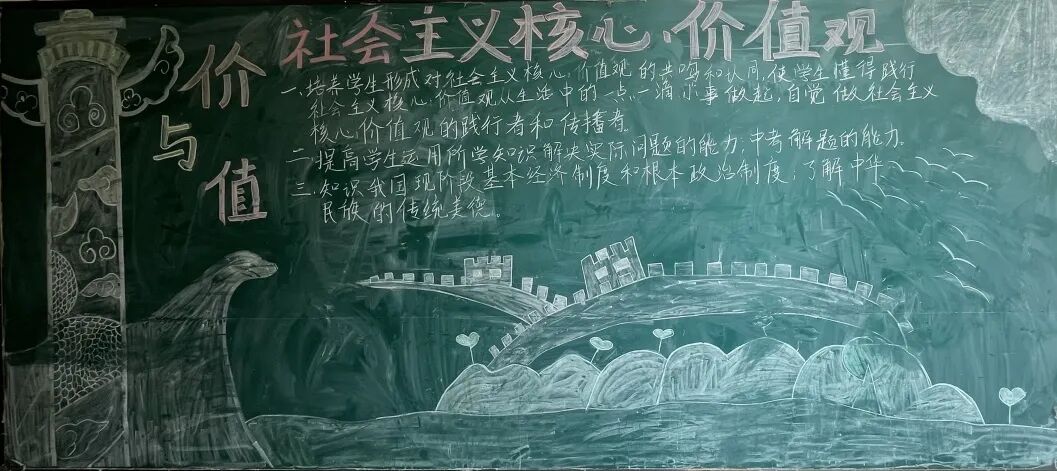 价与值
社会主义核心价值观
一、培养学生形成对社会主义核心价值观的共鸣和认同，使学生懂得践行
社会主义核心价值观从生活中的一点一滴小事做起，自觉做社会主义
核心价值观的践行者和传播者。
二、提高学生运用所学知识解决实际问题的能力，中考解题的能力。
三、知识我国现阶段基本经济制度和根本政治制度；了解中华
民族的传统美德。